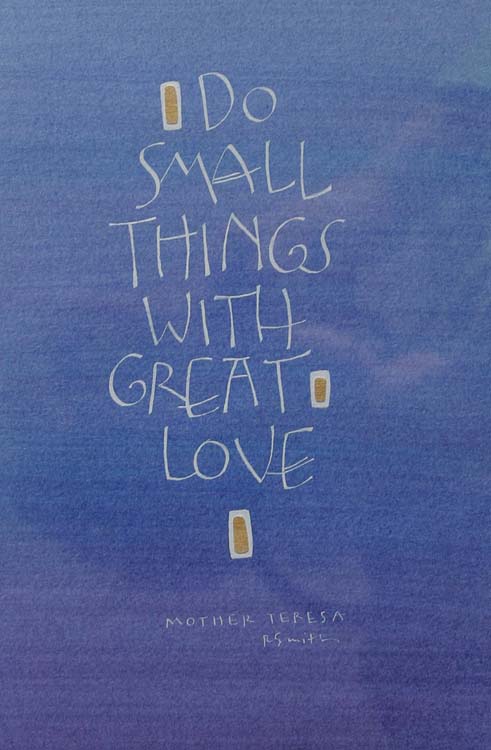 DO
SMALL
THINGS
WITH
GREAT
LOVE
MOTHER TERESA
RSmith